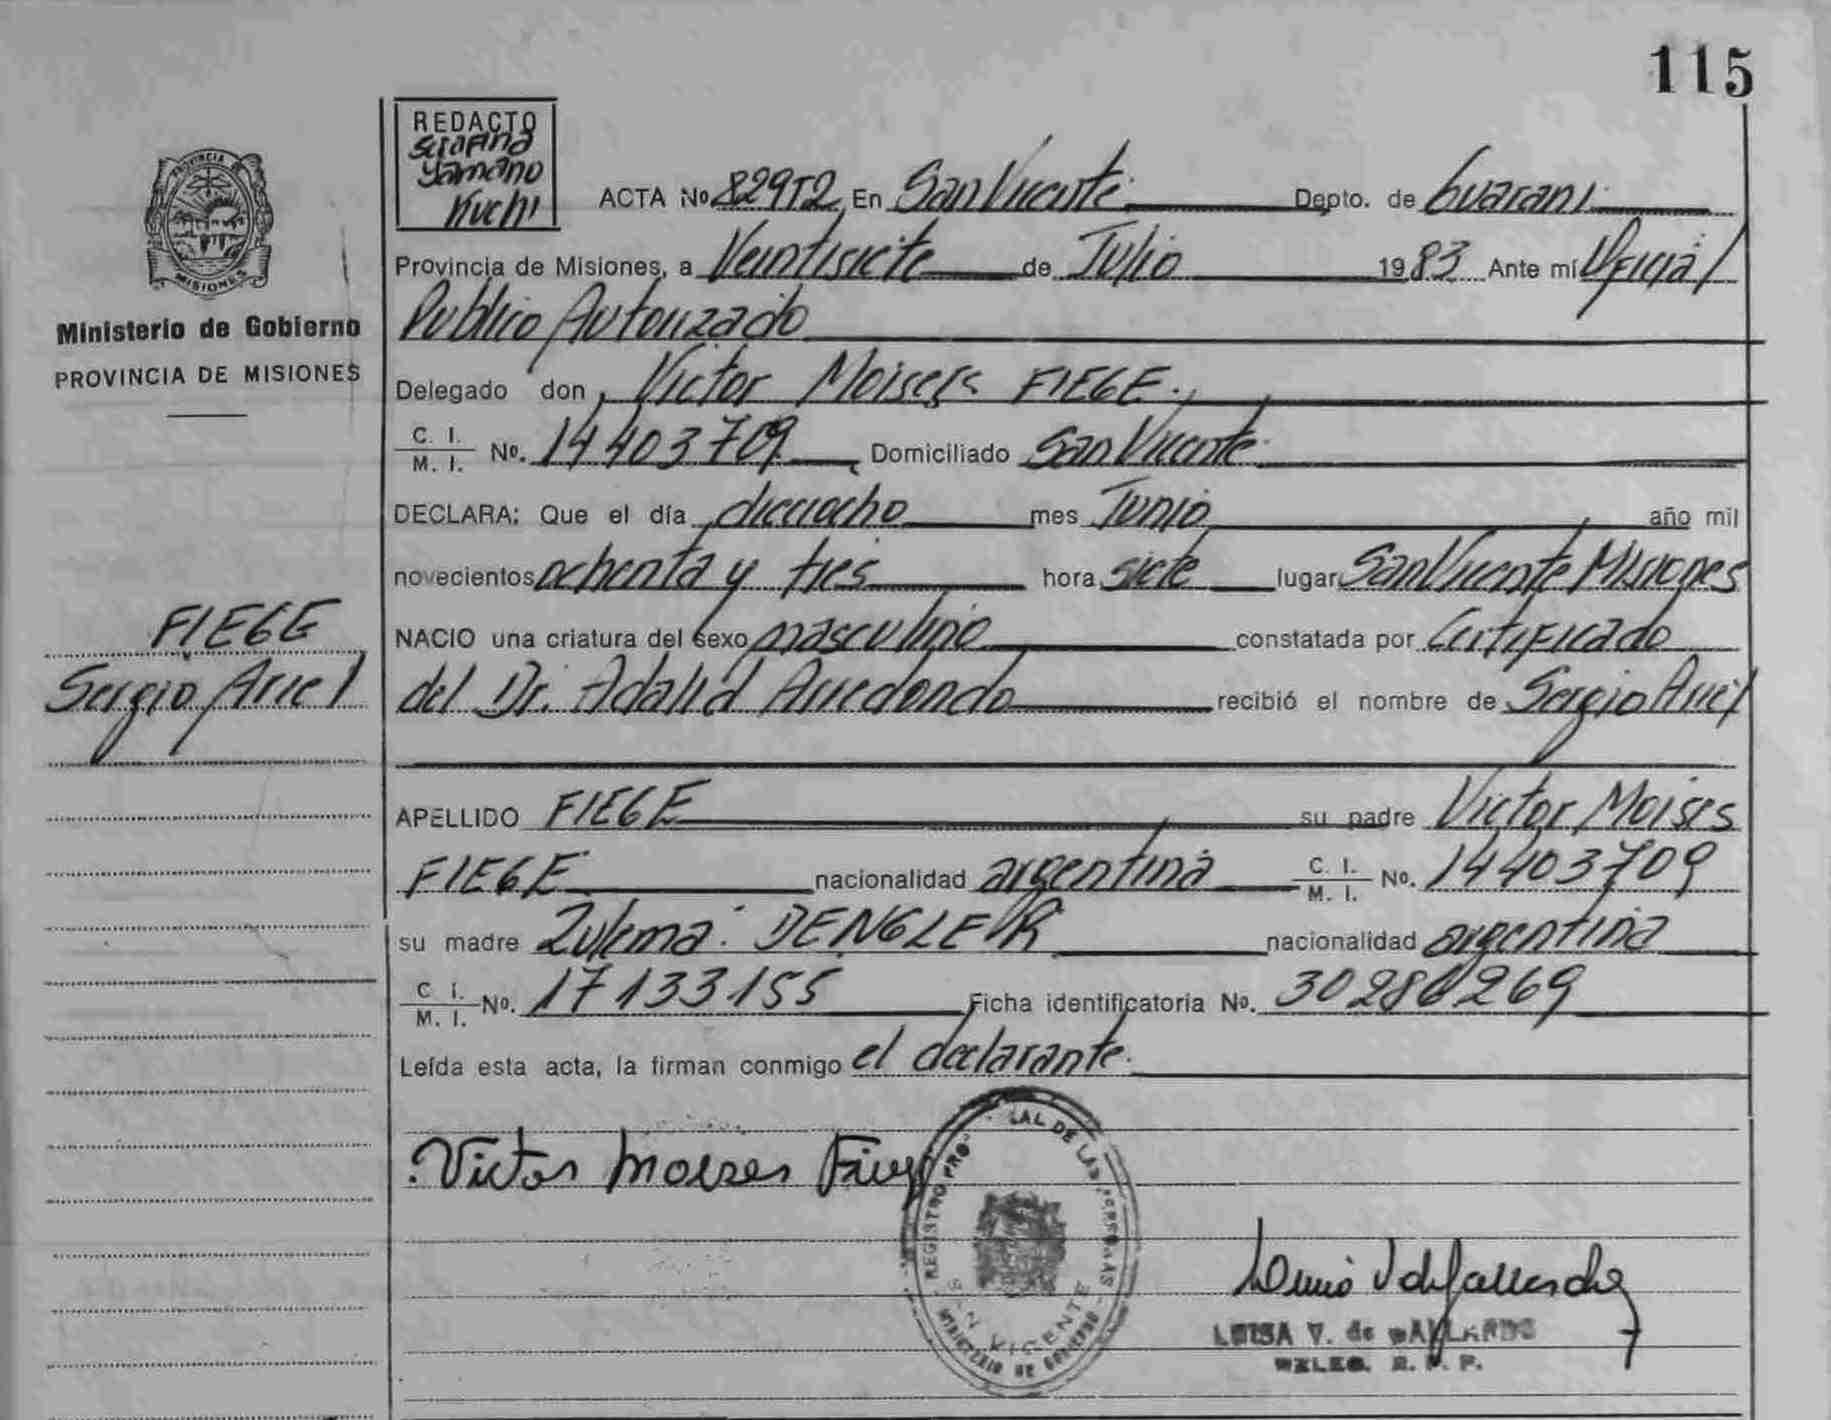 115
REDACTO
Serafina
Yamano
Kuchi
ACTA No 829T2 En San Vicente Depto. de Guarani
Provincia de Misiones, a Veintisiete de Julio 1983 Ante mi Oficial
Publico Autorizado
Delegado don, Victor Moises FIEGE.,
C. I.
M. I. No. 14403709 Domiciliado San Vicente
DECLARA: Que el día dieciocho mes Junio año mil
novecientos ochenta y tres hora siete lugar San Vicente Misiones
NACIO una criatura del sexo masculino constatada por Certificado
del Dr. Adalid Arredondo recibió el nombre de Sergio Ariel
APELLIDO FIEGE su padre Victor Moises
FIEGE nacionalidad argentina C. I. M. I. No. 14403709
su madre Zulema DENGLER nacionalidad argentina
C I. M. I. No. 17133155 Ficha identificatoria No. 30280269
Leída esta acta, la firman conmigo el declarante.
PROVINCIA
MISIONES
Ministerio de Gobierno
PROVINCIA DE MISIONES
FIEGE
Sergio Ariel
Victor Moises
REGISTRO PRO LAL DE LAS PERSONAS
SAN VICENTE
MINISTERIO DE GOBIERNO
LUISA V. de GALLARDO
DELEG. R. P. P.